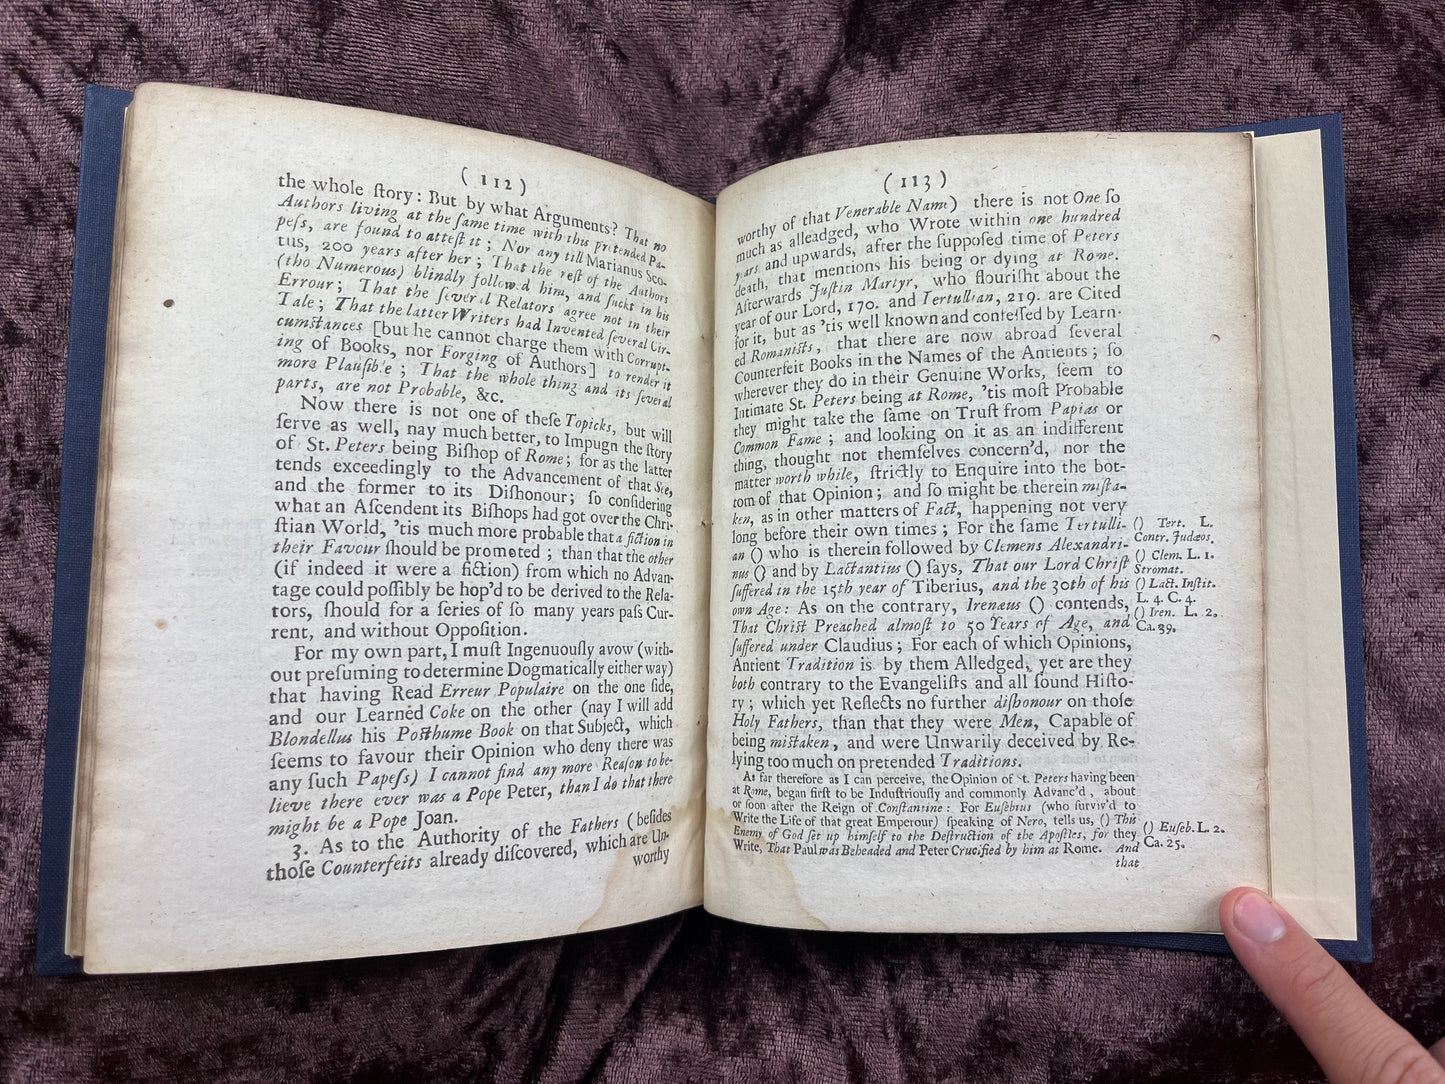 ( 112 )
the whole ſtory: But by what Arguments? That no
Authors living at the ſame time with this pretended Pa-
peſs, are found to atteſt it; Nor any till Marianus Sco-
tus, 200 years after her; That the reſt of the Authors
(tho Numerous) blindly followed him, and ſuckt in his
Errour; That the ſeveral Relators agree not in their
Tale; That the latter Writers had Invented ſeveral Cir-
cumſtances [but he cannot charge them with Corrupt-
ing of Books, nor Forging of Authors] to render it
more Plauſible; That the whole thing and its ſeveral
parts, are not Probable, &c.
Now there is not one of theſe Topicks, but will
ſerve as well, nay much better, to Impugn the ſtory
of St. Peters being Biſhop of Rome; for as the latter
tends exceedingly to the Advancement of that See,
and the former to its Diſhonour; ſo conſidering
what an Aſcendent its Biſhops had got over the Chri-
ſtian World, 'tis much more probable that a fiction in
their Favour ſhould be promoted; than that the other
(if indeed it were a fiction) from which no Advan-
tage could poſſibly be hop'd to be derived to the Rela-
tors, ſhould for a ſeries of ſo many years paſs Cur-
rent, and without Oppoſition.
For my own part, I muſt Ingenuouſly avow (with-
out preſuming to determine Dogmatically either way)
that having Read Erreur Populaire on the one ſide,
and our Learned Coke on the other (nay I will add
Blondellus his Poſthume Book on that Subject, which
ſeems to favour their Opinion who deny there was
any ſuch Papeſs) I cannot find any more Reaſon to be-
lieve there ever was a Pope Peter, than I do that there
might be a Pope Joan.
3. As to the Authority of the Fathers (beſides
thoſe Counterfeits already diſcovered, which are Un-
worthy
( 113 )
worthy of that Venerable Name) there is not One ſo
much as alleadged, who Wrote within one hundred
years and upwards, after the ſuppoſed time of Peters
death, that mentions his being or dying at Rome.
Afterwards Juſtin Martyr, who flouriſht about the
year of our Lord, 170. and Tertullian, 219. are Cited
for it, but as 'tis well known and confeſſed by Learn-
ed Romaniſts, that there are now abroad ſeveral
Counterfeit Books in the Names of the Antients; ſo
wherever they do in their Genuine Works, ſeem to
Intimate St. Peters being at Rome, 'tis moſt Probable
they might take the ſame on Truſt from Papias or
Common Fame; and looking on it as an indifferent
thing, thought not themſelves concern'd, nor the
matter worth while, ſtrictly to Enquire into the bot-
tom of that Opinion; and ſo might be therein miſta-
ken, as in other matters of Fact, happening not very
long before their own times; For the ſame Tertulli-
an () who is therein followed by Clemens Alexandri-
nus () and by Lactantius () ſays, That our Lord Chriſt
ſuffered in the 15th year of Tiberius, and the 30th of his
own Age: As on the contrary, Irenæus () contends,
That Chriſt Preached almoſt to 50 Years of Age, and
ſuffered under Claudius; For each of which Opinions,
Antient Tradition is by them Alledged, yet are they
both contrary to the Evangeliſts and all ſound Hiſto-
ry; which yet Reflects no further diſhonour on thoſe
Holy Fathers, than that they were Men, Capable of
being miſtaken, and were Unwarily deceived by Re-
lying too much on pretended Traditions.
As far therefore as I can perceive, the Opinion of St. Peters having been
at Rome, began firſt to be Induſtriouſly and commonly Advanc'd, about
or ſoon after the Reign of Conſtantine: For Euſebius (who ſurviv'd to
Write the Life of that great Emperour) ſpeaking of Nero, tells us, () This
Enemy of God ſet up himſelf to the Deſtruction of the Apoſtles, for they
Write, That Paul was Beheaded and Peter Crucified by him at Rome. And
that
() Tert. L.
Contr. Judæos.
() Clem. L. 1.
Stromat.
() Lact. Inſtit.
L. 4. C. 4.
() Iren. L. 2.
Ca. 39.
() Euſeb. L. 2.
Ca. 25.